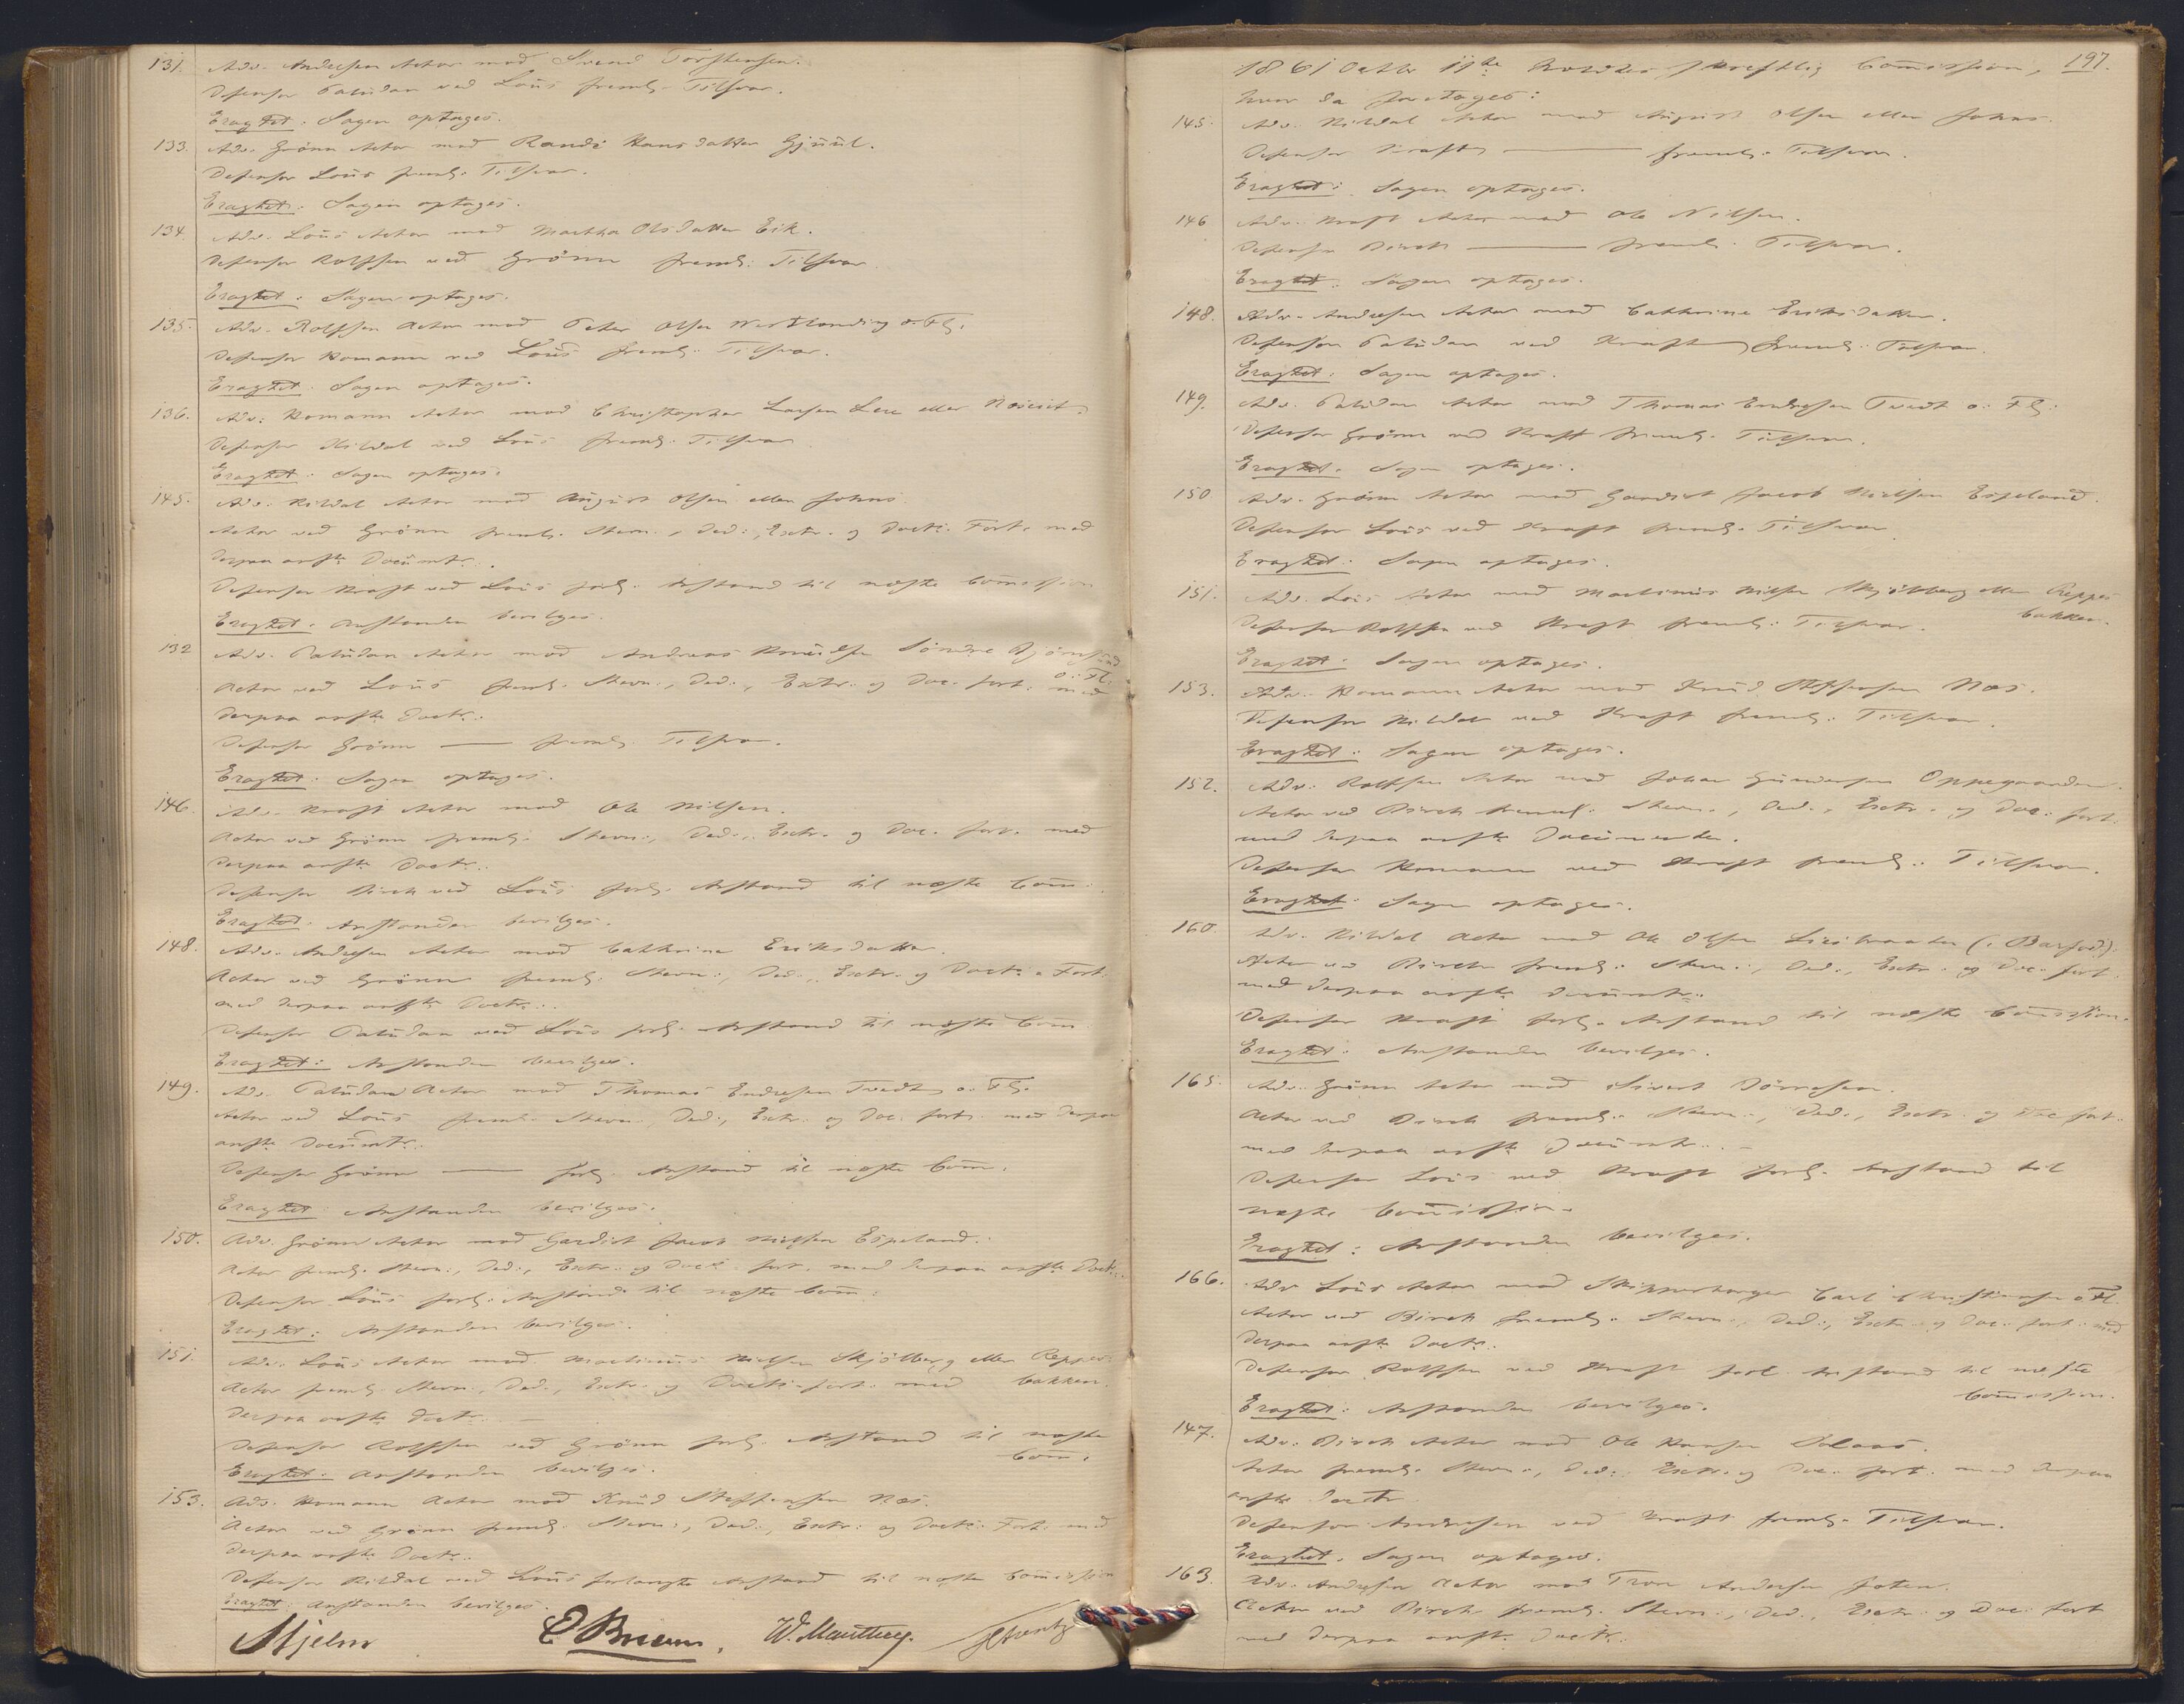 131. Adv. Andersen Actor mod Svend Torstensen.
Defensor Paludan ved Lous freml. Tilsvar.
Eragtet: Sagen optages.
133. Adv. Grönn Actor mod Randi Hansdatter Gjuul.
Defensor Lous freml. Tilsvar.
Eragtet: Sagen optages.
134. Adv. Lous Actor mod Martha Olsdatter Eik.
Defensor Rolfsen ved Grönn freml. Tilsvar
Eragtet: Sagen optages.
135. Adv. Rolfsen Actor mod Peter Olsen o. Fl.
Defensor Homann ved Lous freml. Tilsvar.
Eragtet: Sagen optages.
136. Adv. Homann Actor mod Christopher Larsen Lere eller
Defensor Kildal ved Lous freml. Tilsvar
Eragtet: Sagen optages.
145. Adv. Kildal Actor mod August Olsen eller Johns
Actor ved Grönn freml. Stevn., Ded., Extr. og Docts. Fort. med
derpaa anfte Documtr.
Defensor Kraft ved Lous forl. Anstand til næste Commission
Eragtet: Anstanden bevilges.
132 Adv. Paludan Actor mod Andreas Knudsen Söndre Björnsund
o. Fl.
Actor ved Lous freml. Stevn., Ded., Extr. og Doc. fort. med
derpaa anfte Doctr.
Defensor Grönn — freml. Tilsvar.
Eragtet: Sagen optages.
146. Adv. Kraft Actor mod Ole Nilsen.
Actor ved Grönn freml. Stevn., Ded., Extr. og Doc. fort. med
derpaa anfte Doctr.
Defensor Birch ved Lous forl. Anstand til næste Comm.
Eragtet: Anstanden bevilges.
148. Adv. Andresen Actor mod Cathrine Eriksdatter
Actor ved Grönn freml. Stevn., Ded., Extr. og Docts. Fort.
med derpaa anfte Doctr.
Defensor Paludan ved Lous forl. Anstand til næste Comm.
Eragtet: Anstanden bevilges.
149. Adv. Paludan Actor mod Thomas Endresen Tvedt o. Fl.
Actor ved Lous freml. Stevn., Ded., Extr. og Doc. fort. med derpaa
anfte Documtr.
Defensor Grönn — forl. Anstand til næste Comm.
Eragtet: Anstanden bevilges.
150. Adv. Grönn Actor mod Gardist Jacob Nielsen Espeland.
Actor freml. Stevn., Ded., Extr. og Docts. fort. med derpaa anfte Doctr.
Defensor Lous forl. Anstand til næste Comm.
Eragtet: Anstanden bevilges.
151. Adv. Lous Actor mod Martinius Nielsen Skjölberg eller Reppes
bakken.
Actor freml. Stevn., Ded., Extr. og Docts. fort. med
derpaa anfte Doctr. —
Defensor Rolfsen ved Grönn forl. Anstand til næste
Comm.
Eragtet: Anstanden bevilges.
153. Adv. Homann Actor mod Knud Steffensen Næs.
Actor ved Grönn freml. Stevn., Ded., Extr. og Docts. Fort. med
derpaa anfte Doctr.
Defensor Kildal ved Lous forlangte Anstand til næste Commission
Eragtet: Anstanden bevilges.
Hjelm E Bruun. W. Manthey.
197.
1861 Octbr 11te holdtes skriftlig Commission,
hvor da foretoges:
145. Adv. Kildal Actor mod August Olsen eller Johns.
Defensor Kraft — freml. Tilsvar.
Eragtet: Sagen optages.
146 Adv. Kraft Actor mod Ole Nilsen.
Defensor Birch — freml. Tilsvar.
Eragtet: Sagen optages.
148. Adv. Andresen Actor mod Cathrine Eriksdatter.
Defensor Paludan ved Kraft freml. Tilsvar
Eragtet: Sagen optages.
149. Adv. Paludan Actor mod Thomas Endresen Tvedt o. Fl.
Defensor Grönn ved Kraft freml. Tilsvar.
Eragtet. Sagen optages.
150 Adv. Grönn Actor mod Gardist Jacob Nielsen Espeland.
Defensor Lous ved Kraft freml. Tilsvar
Eragtet: Sagen optages.
151. Adv. Lous Actor mod Martinius Nilsen Skjölberg eller Reppes
bakken.
Defensor Rolfsen ved Kraft freml. Tilsvar.
Eragtet: Sagen optages.
153. Adv. Homann Actor mod Knud Steffensen Næs.
Defensor Kildal ved Kraft freml. Tilsvar.
Eragtet: Sagen optages.
152. Adv. Rolfsen Actor mod Johan Gundersen Oppegaarden.
Actor ved Birch freml. Stevn., Ded., Extr. og Doc. fort.
med derpaa anfte Documenter.
Defensor Homann ved Kraft freml. Tilsvar.
Eragtet: Sagen optages.
160. Adv. Kildal Actor mod Ole Olsen
Actor ved Birch freml. Stevn., Ded., Extr. og Doc. fort.
med derpaa anfte Documtr.
Defensor Kraft forl. Anstand til næste Commission.
Eragtet: Anstanden bevilges.
165. Adv. Grönn Actor mod Sivert Dörresen.
Actor ved Birch freml. Stevn., Ded., Extr. og Doc. fort.
med derpaa anfte Documtr. —
Defensor Lous ved Kraft forl. Anstand til
næste Commission.
Eragtet: Anstanden bevilges.
166. Adv Lous Actor mod Skipperborger Carl Christiansen o. Fl.
Actor ved Birch freml. Stevn., Ded., Extr. og Doc. fort. med
derpaa anfte Doctr.
Defensor Rolfsen ved Kraft forl. Anstand til næste
Commission.
Eragtet: Anstanden bevilges.
147. Adv. Birch Actor mod Ole Hansen
Actor freml. Stevn., Ded., Extr. og Doc. fort. med derpaa
anfte Doctr
Defensor Andresen ved Kraft freml. Tilsvar.
Eragtet. Sagen optages.
163. Adv. Andresen Actor mod Tron Andersen Joten.
Actor ved Birch freml. Stevn., Ded., Extr. og Doc. fort
med derpaa anfte Doctr.